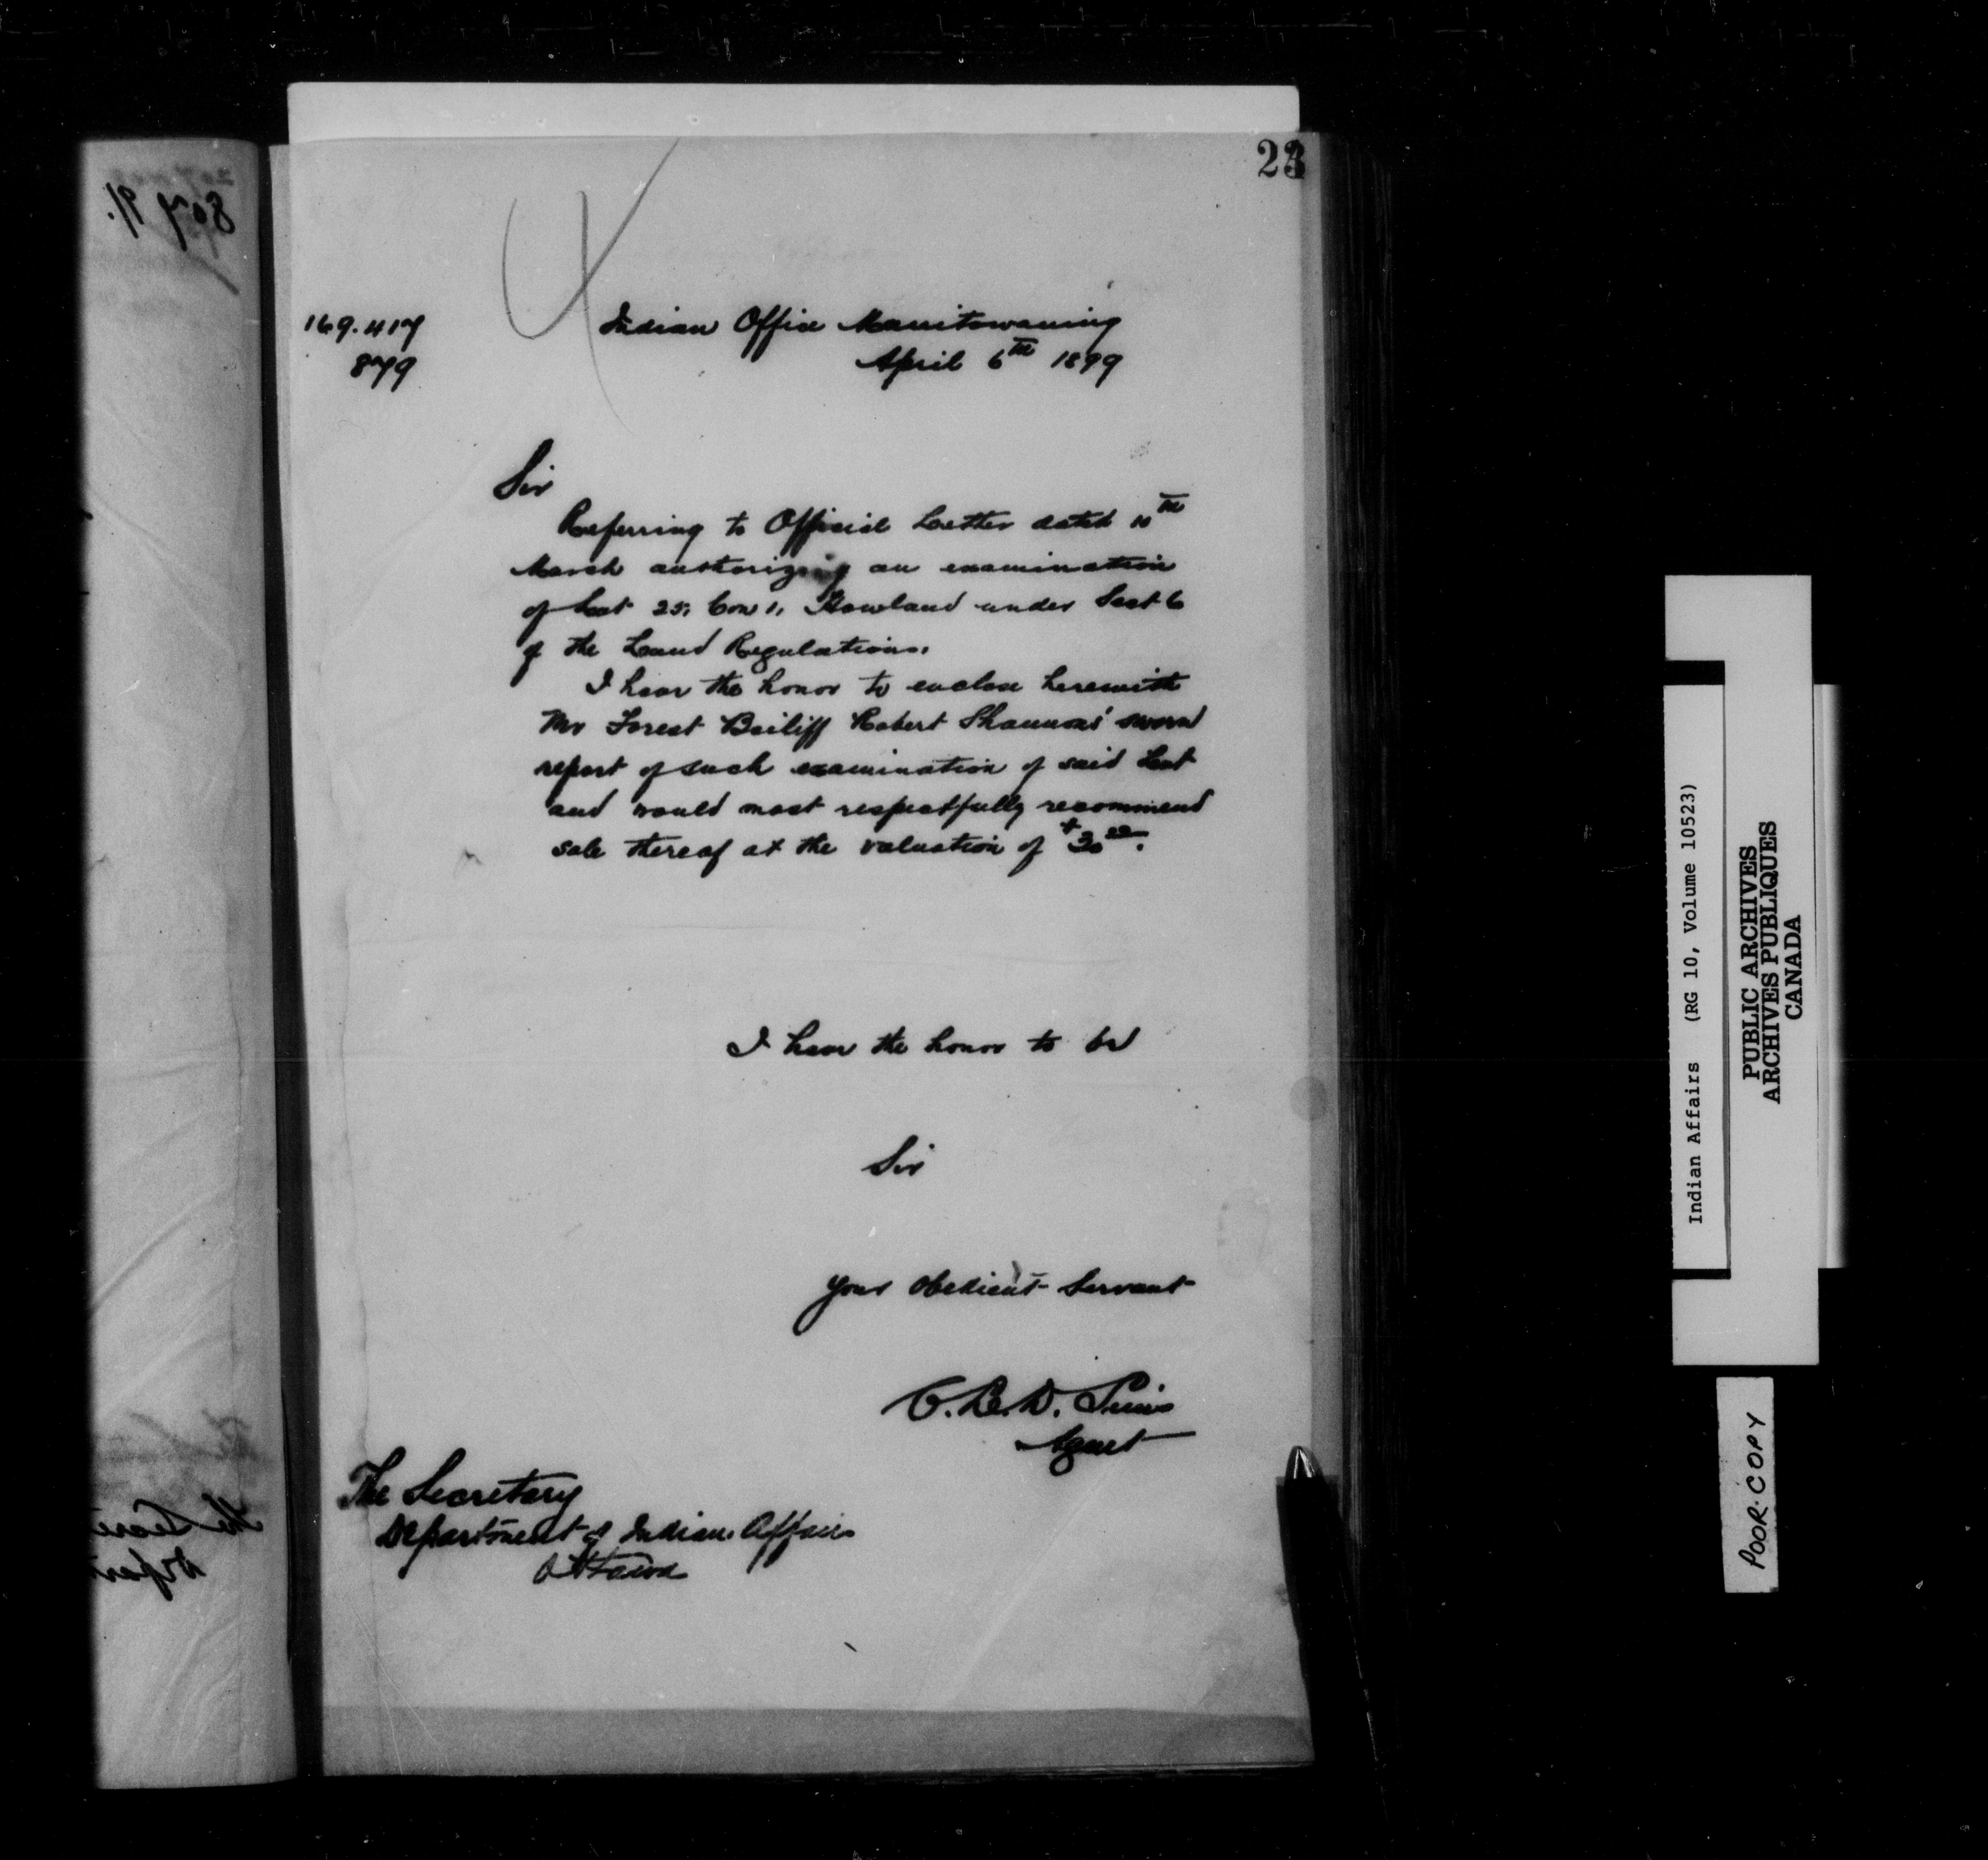 23
169.417
879
Indian Office Manitowaning
April 6th 1899
Sir
Referring to Official Letter dated 10th
March authorizing an examination
of Lot 25, Con 1, Howland under Sect 6
of the Land Regulations.
I have the honor to enclose herewith
Mr Forest Bailiff Robert Shannons' sworn
report of such examination of said Lot
and would most respectfully recommend
sale thereof at the valuation of $30.00.
I have the honor to be
Sir
Your Obedient Servant
C.L.D. Sims
Agent
The Secretary
Department of Indian Affairs
Ottawa
Indian Affairs (RG 10, Volume 10523)
PUBLIC ARCHIVES
ARCHIVES PUBLIQUES
CANADA
POOR COPY